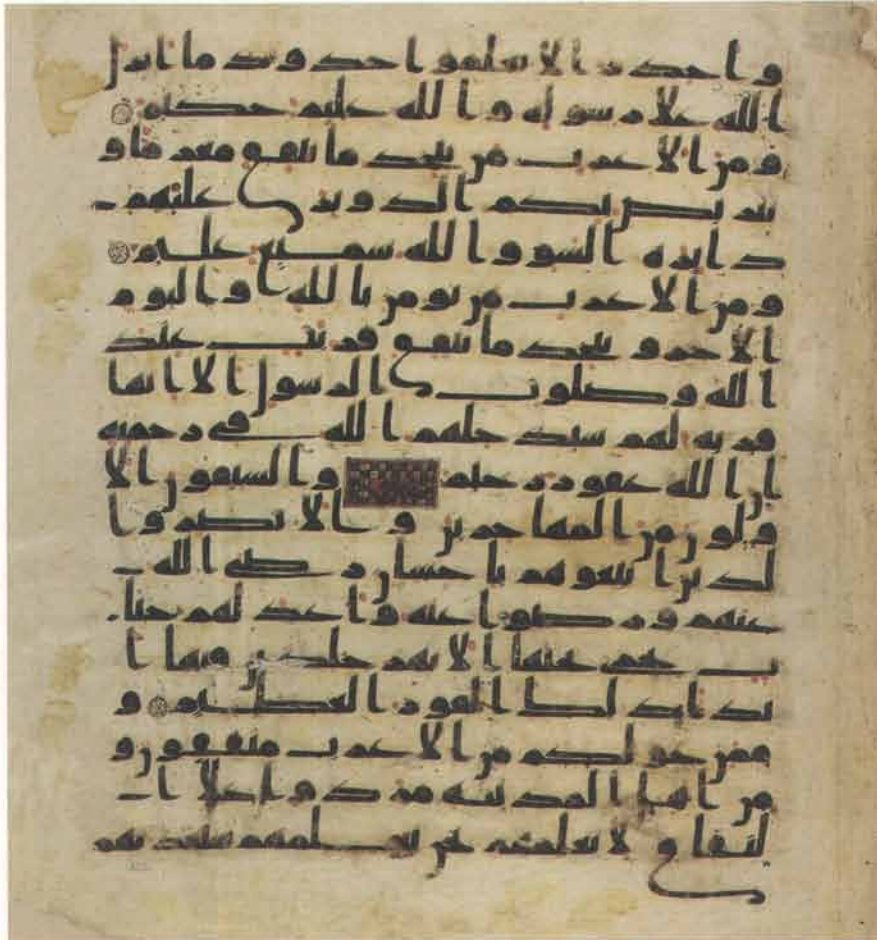 واجدر الا يعلموا حدود ما انزل
الله علا رسوله والله عليم حكيم
ومن الاعرب من يتخذ ما ينفق مغرما و
يتربص بكم الدوير عليهم
دايره السو والله سميع عليم
ومن الاعرب من يومن بالله واليوم
الاخر و يتخذ ما ينفق قربت عند
الله وصلوت الرسول الا انها
قربه لهم سيدخلهم الله في رحمته
ان الله غفور رحيم والسبقون الا
ولون من المهاجرين و الانصر وا
لذين اتبعوهم باحسان رضي الله
عنهم ورضوا عنه واعد لهم جنا
ت تجري تحتها الانهر خلدين فيها ا
بدا ذلك الفوز العظيم و
ممن حولكم من الاعرب منفقون و
من اهل المدينه مردوا علا ا
لنفاق لا تعلمهم نحن نعلمهم سنعذبهم